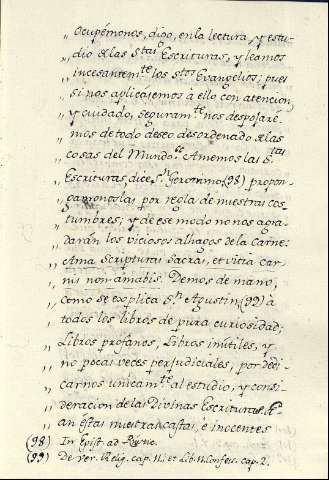 Ocupémonos, digo, en la lectura, y estu-
„ dio de las S.tas Escrituras, y leamos
„ incesantem.te los S.tos Evangelios; pues
„ si nos aplicasemos à ello con atencion,
„ y cuidado, seguram.te nos despojaré-
„ mos de todo deseo desordenado de las
„ cosas del Mundo. Amemos las S.tas
„ Escrituras, dice S.n Geronimo (98) propon-
„ gamonoslas por regla de nuestras cos-
„ tumbres; y de ese modo no nos agra-
„ darán los viciosos alhagos de la Carne:
„ Ama Scripturas Sacras, et vitia car-
„ nis non amabis. Demos de mano,
„ como se explica S.n Agustin, (99) à
„ todos los libros de pura curiosidad;
„ Libros profanos, Libros inútiles, y
„ no pocas veces perjudiciales, por dedi-
„ carnos unicam.te al estudio, y consi-
„ deracion de las Divinas Escrituras. Se-
„ an éstas nuestras castas, è inocentes
(98) In Epist. ad
(99) De ver. Relig. cap. 11. et Lib. 11. Confes. cap. 2.